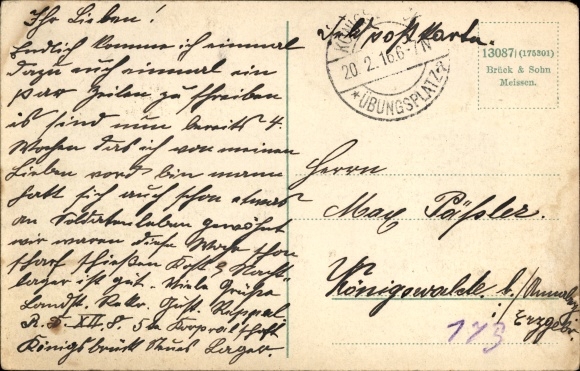 Ihr Lieben!
Endlich komme ich einmal
dazu euch einmal ein
par Zeilen zu schreiben
is sind nun bereits 4.
Wochen das ich von meinen
Lieben fort bin mann
hatt sich auch schon etwas
an Soldatenleben gewöhnt
wir waren diese Woche schon
scharf schießen Kost & Nacht
lager ist gut. Viele Grüße
Landst. Rekr. Gust.
R. D. XII. 8. 5te Korporalschaft
Königsbrück Neues Lager.
Feldpostkarte.
20.2.16.6-7N
*ÜBUNGSPLATZ a
13087 (175301)
Brück & Sohn
Meissen.
Herrn
Max Päßler.
Königswalde b./Annabg
i/Erzgebi.
173